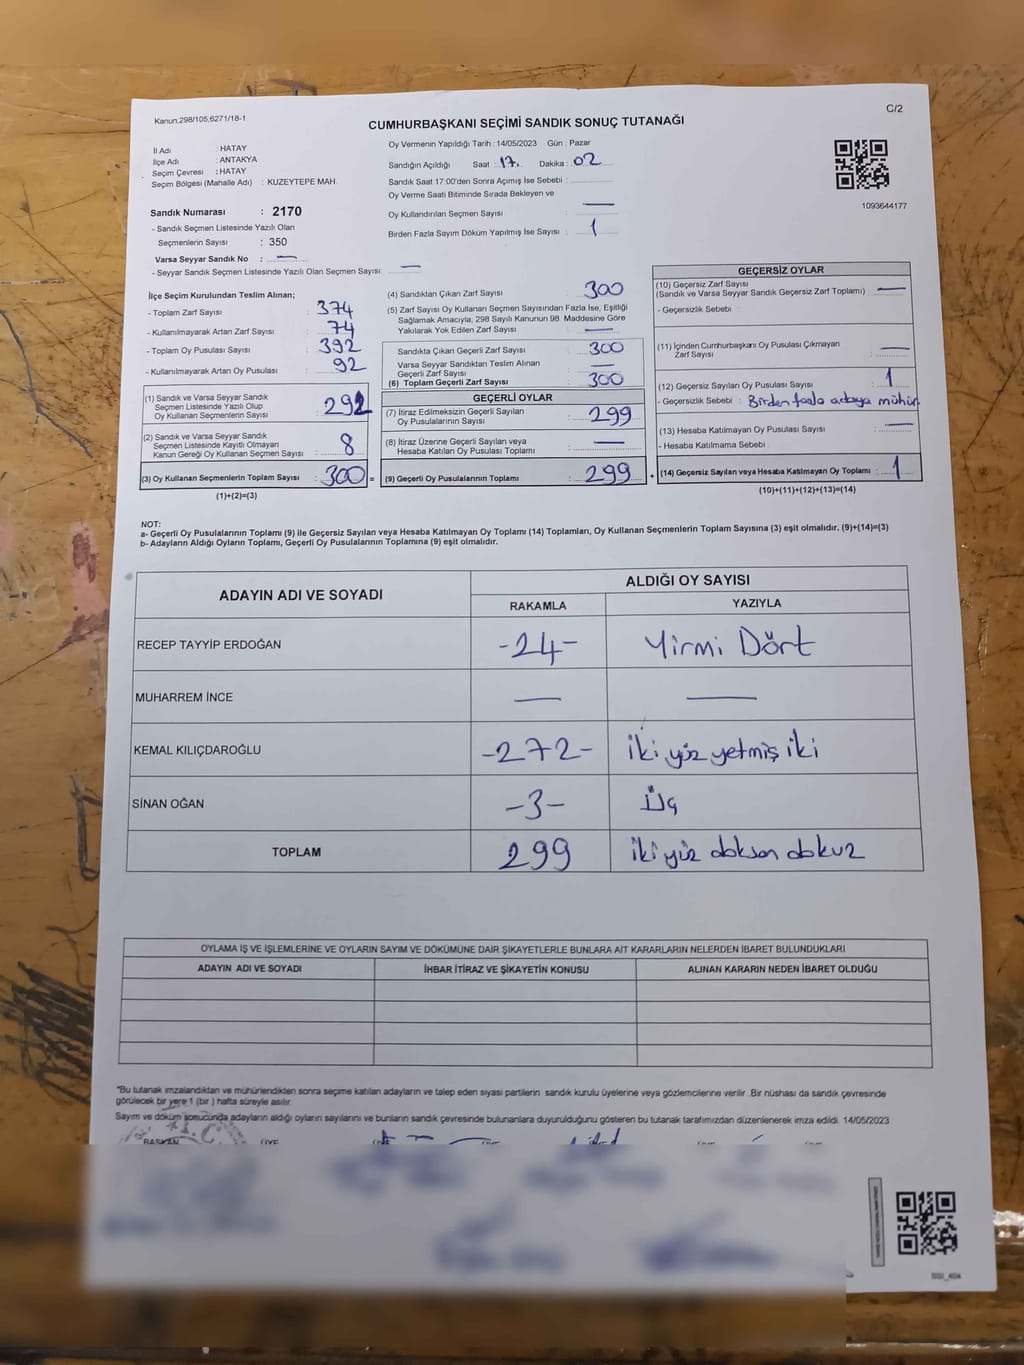 Kanun:298/105;6271/18-1
C/2
CUMHURBAŞKANI SEÇİMİ SANDIK SONUÇ TUTANAĞI
İl Adı : HATAY
İlçe Adı : ANTAKYA
Seçim Çevresi : HATAY
Seçim Bölgesi (Mahalle Adı) : KUZEYTEPE MAH.
Sandık Numarası : 2170
- Sandık Seçmen Listesinde Yazılı Olan
Seçmenlerin Sayısı : 350
Varsa Seyyar Sandık No : —
- Seyyar Sandık Seçmen Listesinde Yazılı Olan Seçmen Sayısı: —
Oy Vermenin Yapıldığı Tarih : 14/05/2023 Gün : Pazar
Sandığın Açıldığı Saat : 17. Dakika : 02
Sandık Saat 17:00'den Sonra Açımış İse Sebebi :
Oy Verme Saati Bitiminde Sırada Bekleyen ve
Oy Kullandırılan Seçmen Sayısı : —
Birden Fazla Sayım Döküm Yapılmış İse Sayısı : 1
1093644177
İlçe Seçim Kurulundan Teslim Alınan;
- Toplam Zarf Sayısı : 374
- Kullanılmayarak Artan Zarf Sayısı : 74
- Toplam Oy Pusulası Sayısı : 392
- Kullanılmayarak Artan Oy Pusulası : 92
(1) Sandık ve Varsa Seyyar Sandık
Seçmen Listesinde Yazılı Olup
Oy Kullanan Seçmenlerin Sayısı : 292
(2) Sandık ve Varsa Seyyar Sandık
Seçmen Listesinde Kayıtlı Olmayan
Kanun Gereği Oy Kullanan Seçmen Sayısı : 8
(3) Oy Kullanan Seçmenlerin Toplam Sayısı : 300 =
(1)+(2)=(3)
(4) Sandıktan Çıkan Zarf Sayısı : 300
(5) Zarf Sayısı Oy Kullanan Seçmen Sayısından Fazla İse, Eşitliği
Sağlamak Amacıyla; 298 Sayılı Kanunun 98. Maddesine Göre
Yakılarak Yok Edilen Zarf Sayısı : —
Sandıkta Çıkan Geçerli Zarf Sayısı : 300
Varsa Seyyar Sandıktan Teslim Alınan
Geçerli Zarf Sayısı : —
(6) Toplam Geçerli Zarf Sayısı : 300
GEÇERLİ OYLAR
(7) İtiraz Edilmeksizin Geçerli Sayılan
Oy Pusulasının Sayısı : 299
(8) İtiraz Üzerine Geçerli Sayılan veya
Hesaba Katılan Oy Pusulası Toplamı : —
(9) Geçerli Oy Pusulalarının Toplamı : 299 +
GEÇERSİZ OYLAR
(10) Geçersiz Zarf Sayısı
(Sandık ve Varsa Seyyar Sandık Geçersiz Zarf Toplamı) : —
- Geçersizlik Sebebi :
(11) İçinden Cumhurbaşkanı Oy Pusulası Çıkmayan
Zarf Sayısı : —
(12) Geçersiz Sayılan Oy Pusulası Sayısı : 1
- Geçersizlik Sebebi : Birden fazla adaya mühür.
(13) Hesaba Katılmayan Oy Pusulası Sayısı : —
- Hesaba Katılmama Sebebi
(14) Geçersiz Sayılan veya Hesaba Katılmayan Oy Toplamı : 1
(10)+(11)+(12)+(13)=(14)
NOT:
a- Geçerli Oy Pusulalarının Toplamı (9) ile Geçersiz Sayılan veya Hesaba Katılmayan Oy Toplamı (14) Toplamları, Oy Kullanan Seçmenlerin Toplam Sayısına (3) eşit olmalıdır. (9)+(14)=(3)
b- Adayların Aldığı Oyların Toplamı, Geçerli Oy Pusulalarının Toplamına (9) eşit olmalıdır.
ADAYIN ADI VE SOYADI ALDIĞI OY SAYISI
RAKAMLA YAZIYLA
RECEP TAYYİP ERDOĞAN -24- Yirmi Dört
MUHARREM İNCE — —
KEMAL KILIÇDAROĞLU -272- iki yüz yetmiş iki
SİNAN OĞAN -3- Üç
TOPLAM 299 iki yüz doksan dokuz
OYLAMA İŞ VE İŞLEMLERİNE VE OYLARIN SAYIM VE DÖKÜMÜNE DAİR ŞİKAYETLERLE BUNLARA AİT KARARLARIN NELERDEN İBARET BULUNDUKLARI
ADAYIN ADI VE SOYADI İHBAR İTİRAZ VE ŞİKAYETİN KONUSU ALINAN KARARIN NEDEN İBARET OLDUĞU
*Bu tutanak imzalandıktan ve mühürlendikten sonra seçime katılan adayların ve talep eden siyasi partilerin sandık kurulu üyelerine veya gözlemcilerine verilir. Bir nüshası da sandık çevresinde
görülecek bir yere 1 (bir ) hafta süreyle asılır.
Sayım ve döküm sonucunda adayların aldığı oyların sayılarını ve bunların sandık çevresinde bulunanlara duyurulduğunu gösteren bu tutanak tarafımızdan düzenlenerek imza edildi. 14/05/2023
BAŞKAN ÜYE